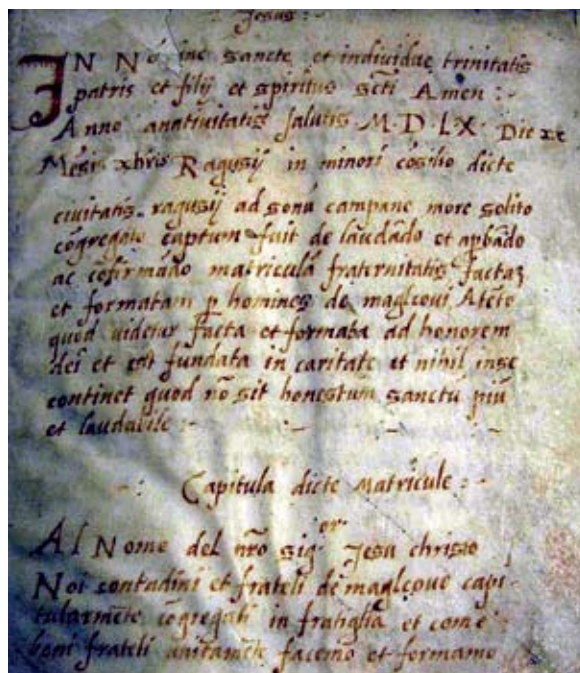 Jesus :-
IN No͞ine sancte et individue trinitatis
patris et filij et spiritus sc͞ti Amen :-
Anno anativitatis salutis M·D·LX· Die xx
Me͞sis xbris Ragusij in minori co͞silio dicte
civitatis. ragusij ad sonu͞ campane more solito
co͞gregato captum fuit de lauda͞do et ap͞ba͞do
ac co͞firma͞do matricula͞ fraternitatis factaʒ
et formatam p homines de maglcovi Ate͞to
quod videtur facta et formata ad honorem
dei et est fundata in caritate et nihil in se
continet quod no͞ sit honestum sanctu͞ piu͞
et laudabile :- :- - -
-: Capitula dicte Matricule :-
Al Nome del nr͞o sigor Jesu christo
Noi contadini et frateli de maglcove capi-
tularme͞te co͞gregati in fratiglia et come
boni frateli unitame͞te facemo et formamo